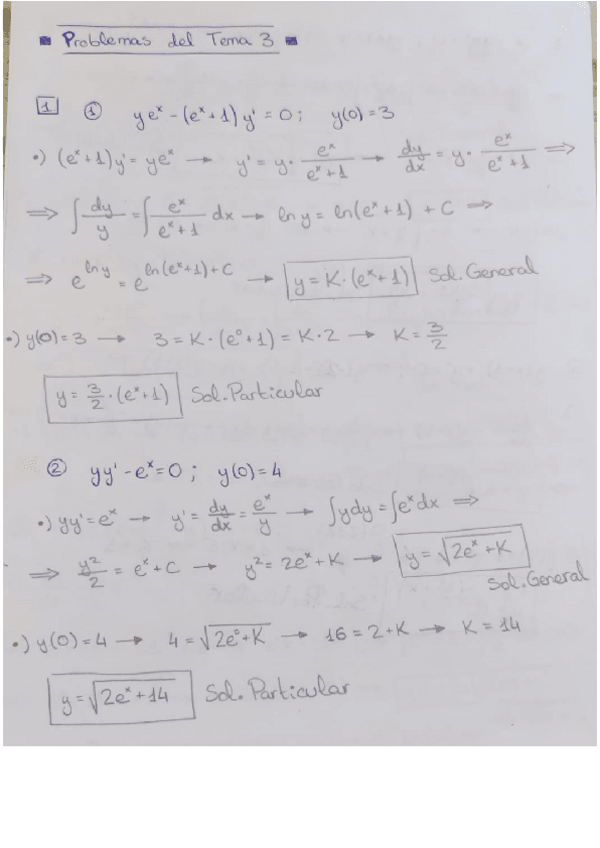 Problemas del Tema 3
1 ① yeˣ - (eˣ+1) y' = 0; y(0) = 3
•) (eˣ+1)y' = yeˣ → y' = y · eˣ/(eˣ+1) → dy/dx = y · eˣ/(eˣ+1) ⟹
⟹ ∫ dy/y = ∫ eˣ/(eˣ+1) dx → ln y = ln(eˣ+1) + C ⟹
⟹ e^(ln y) = e^(ln(eˣ+1)+C) → y = K · (eˣ+1) Sol. General
•) y(0) = 3 → 3 = K · (e⁰+1) = K · 2 → K = 3/2
y = 3/2 · (eˣ+1) Sol. Particular
② yy' - eˣ = 0; y(0) = 4
•) yy' = eˣ → y' = dy/dx = eˣ/y → ∫ydy = ∫eˣdx ⟹
⟹ y²/2 = eˣ + C → y² = 2eˣ + K → y = √(2eˣ + K)
Sol. General
•) y(0) = 4 → 4 = √(2e⁰+K) → 16 = 2 + K → K = 14
y = √(2eˣ + 14) Sol. Particular